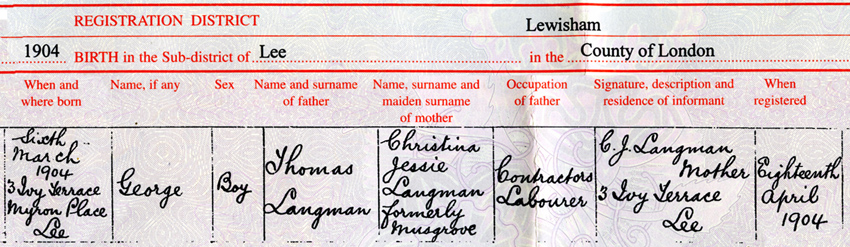 REGISTRATION DISTRICT Lewisham
1904 BIRTH in the Sub-district of Lee in the County of London
When and where born
Name, if any
Sex
Name and surname of father
Name, surname and maiden surname of mother
Occupation of father
Signature, description and residence of informant
When registered
Sixth
March
1904
3 Ivy Terrace
Myron Place
Lee
George
Boy
Thomas
Langman
Christina
Jessie
Langman
formerly
Musgrove
Contractors
Labourer
C. J. Langman
Mother
3 Ivy Terrace
Lee
Eighteenth
April
1904